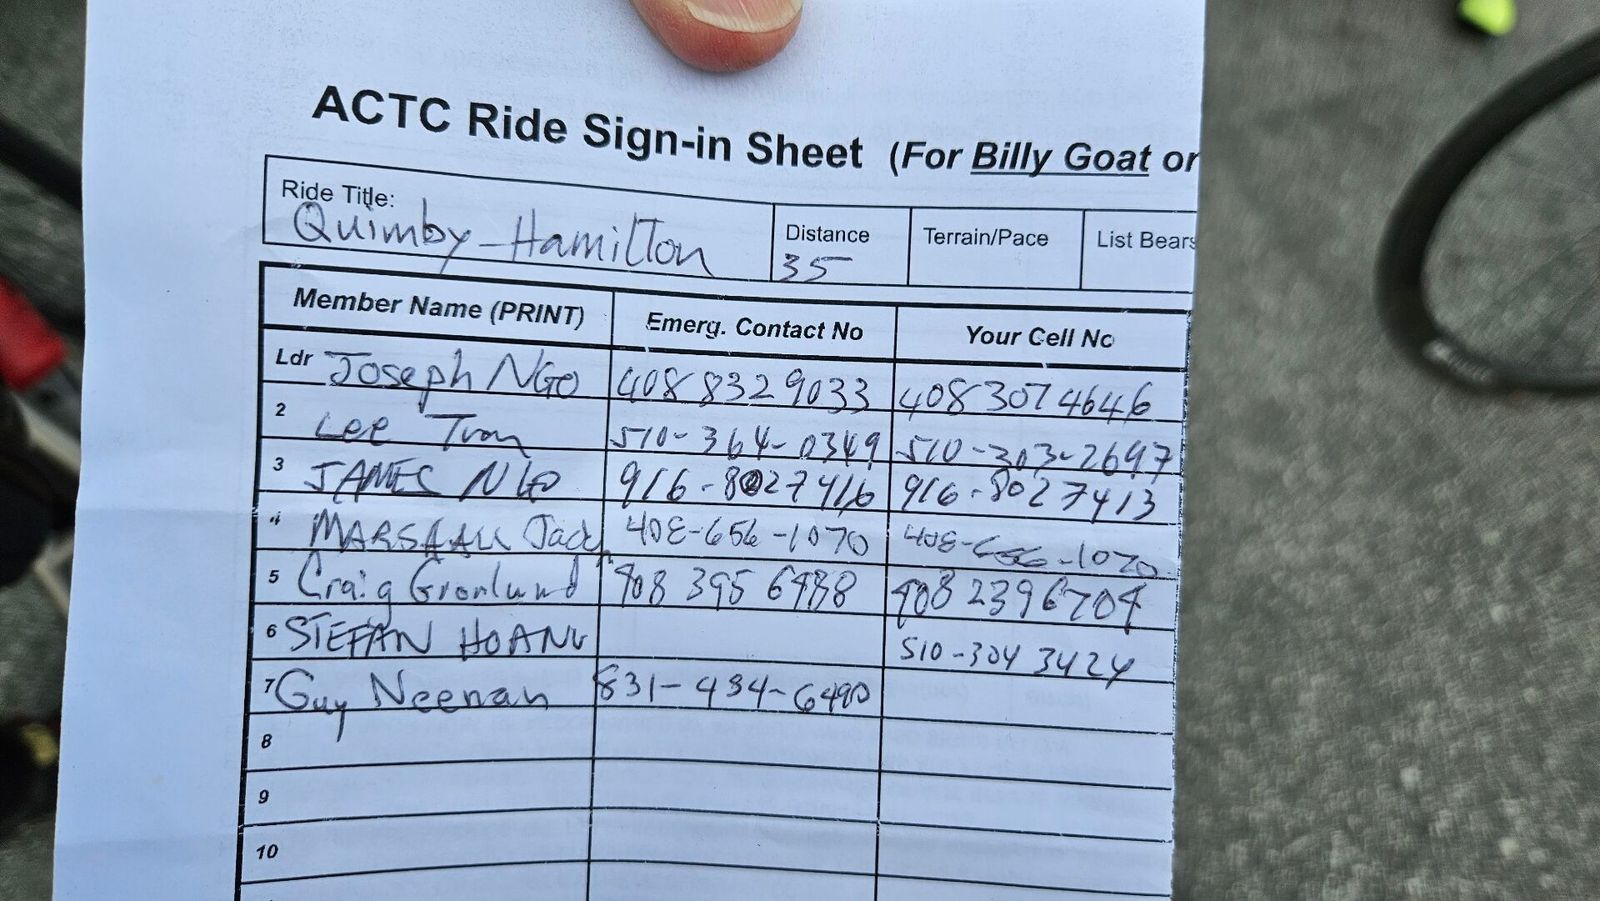 ACTC Ride Sign-in Sheet (For Billy Goat or
Ride Title: Quimby-Hamilton
Distance 35
Terrain/Pace
List Bears
Member Name (PRINT) Emerg. Contact No Your Cell No
Ldr Joseph NGO 408 832 9033 408 307 4646
2 Lee Tran 510-364-0349 510-303-2697
3 JAMES NGO 916-8027416 916-8027413
4 MARSHALL Jack 408-656-1070 408-656-1070
5 Craig Gronlund 408 395 6488 408 2396704
6 STEFAN HOANG 510-304 3424
7 Guy Neenan 831-434-6490
8
9
10